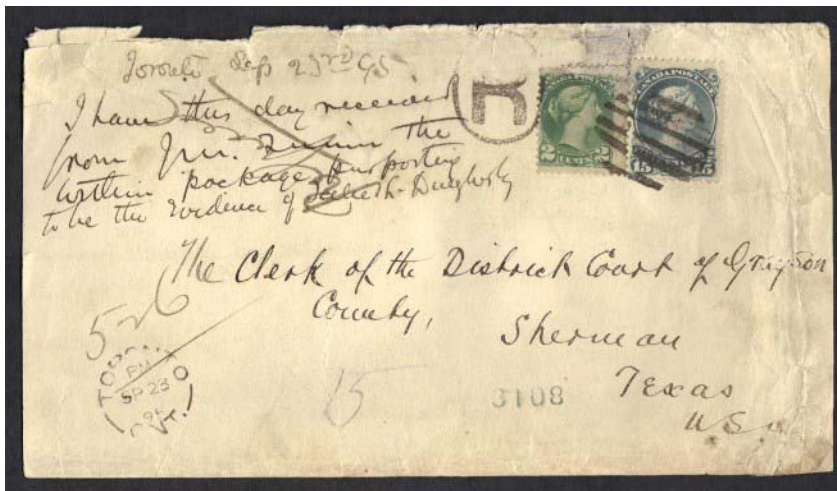 Toronto Sep 23rd 95
I have this day received
from Jno. the
within package purporting
to be the Evidence of
R
CANADA POSTAGE
2 CENTS 2
CANADA POSTAGE
15 15
The Clerk of the District Court of Grayson
County,
Sherman
Texas
U.S.
526
TORONTO
PM
SP 23
95
ONT.
15
3108